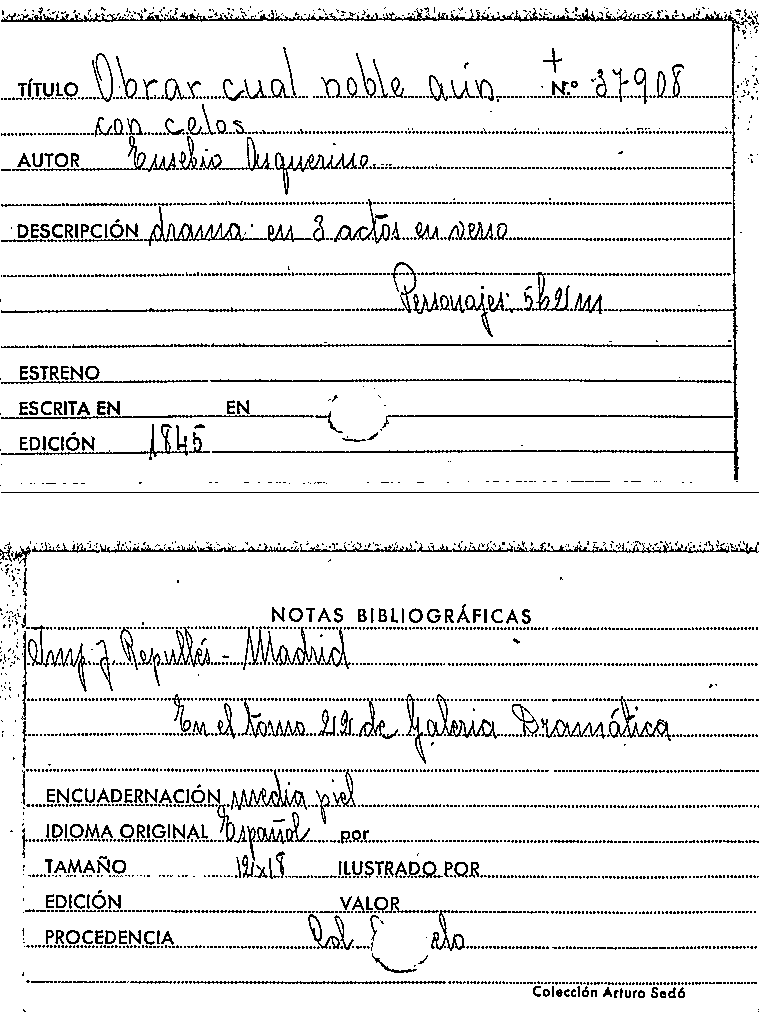 TÍTULO Obrar cual noble aún + N.º 37908
con celos
AUTOR Eusebio Asquerino
DESCRIPCIÓN drama: en 3 actos en verso
Personajes: 5h 2m
ESTRENO
ESCRITA EN EN
EDICIÓN 1845
NOTAS BIBLIOGRÁFICAS
Imp. J. Repullés - Madrid
En el tomo 22 de Galeria Dramática
ENCUADERNACIÓN media piel
IDIOMA ORIGINAL Español por
TAMAÑO 12x18 ILUSTRADO POR
EDICIÓN VALOR
PROCEDENCIA
Colección Arturo Sedó